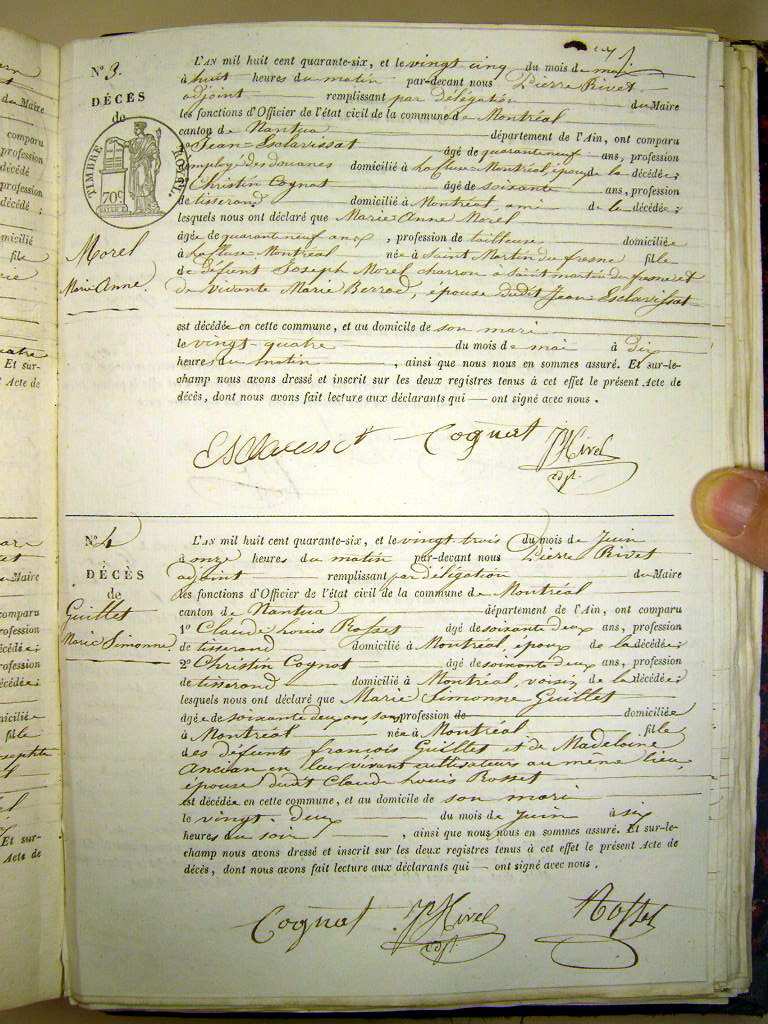 N.º 3.
DÉCÈS
de
TIMBRE ROYAL.
70c
Morel
Marie Anne.
L'AN mil huit cent quarante-six, et le vingt cinq du mois de mai
à huit heures du matin par-devant nous Pierre Rivet
adjoint remplissant par délégation du Maire
les fonctions d'Officier de l'état civil de la commune de Montréal
canton de Nantua département de l'Ain, ont comparu
1º Jean Esclavissat âgé de quarante neuf ans, profession
employé des douanes domicilié à la cluse Montréal, époux de la décédée;
2º Christin Cognat âgé de soixante ans, profession
de tisserand domicilié à Montréal, ami de la décédée;
lesquels nous ont déclaré que Marie Anne Morel
âgée de quarante neuf ans, profession de tailleuse domiciliée
à la cluse Montréal née à Saint Martin du fresne fille
de défunt Joseph Morel charron à Saint martin du fresne et
de vivante Marie Berrod, épouse dudit Jean Esclavissat
est décédée en cette commune, et au domicile de son mari
le vingt-quatre du mois de mai à dix
heures du matin, ainsi que nous nous en sommes assuré. Et sur-le-
champ nous avons dressé et inscrit sur les deux registres tenus à cet effet le présent Acte de
décès, dont nous avons fait lecture aux déclarants qui — ont signé avec nous.
Cognat P Rivet
adjt.
N.º 4
DÉCÈS
de
Guillet
Marie Simonne.
L'AN mil huit cent quarante-six, et le vingt trois du mois de Juin
à onze heures du matin par-devant nous Pierre Rivet
adjoint remplissant par délégation du Maire
les fonctions d'Officier de l'état civil de la commune de Montréal
canton de Nantua département de l'Ain, ont comparu
1º Claude Louis Rosset âgé de soixante deux ans, profession
de tisserand domicilié à Montréal, époux de la décédée;
2º Christin Cognat âgé de soixante deux ans, profession
de tisserand domicilié à Montréal, voisin de la décédée;
lesquels nous ont déclaré que Marie Simonne Guillet
âgée de soixante deux ans sans profession de domiciliée
à Montréal née à Montréal fille
des défunts françois Guillet et de Madelaine
Ancian en leur vivant cultivateurs au même lieu,
épouse dudit Claude Louis Rosset
est décédée en cette commune, et au domicile de son mari
le vingt-deux du mois de Juin à six
heures du soir, ainsi que nous nous en sommes assuré. Et sur-le-
champ nous avons dressé et inscrit sur les deux registres tenus à cet effet le présent Acte de
décès, dont nous avons fait lecture aux déclarants qui — ont signé avec nous.
Cognat P Rivet Rosset
adjt